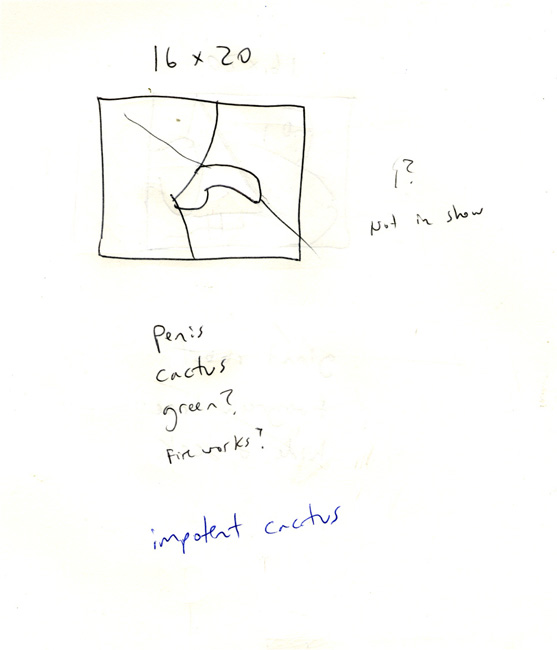 16 x 20
1?
Not in show
Penis
cactus
green?
Fire works?
impotent cactus